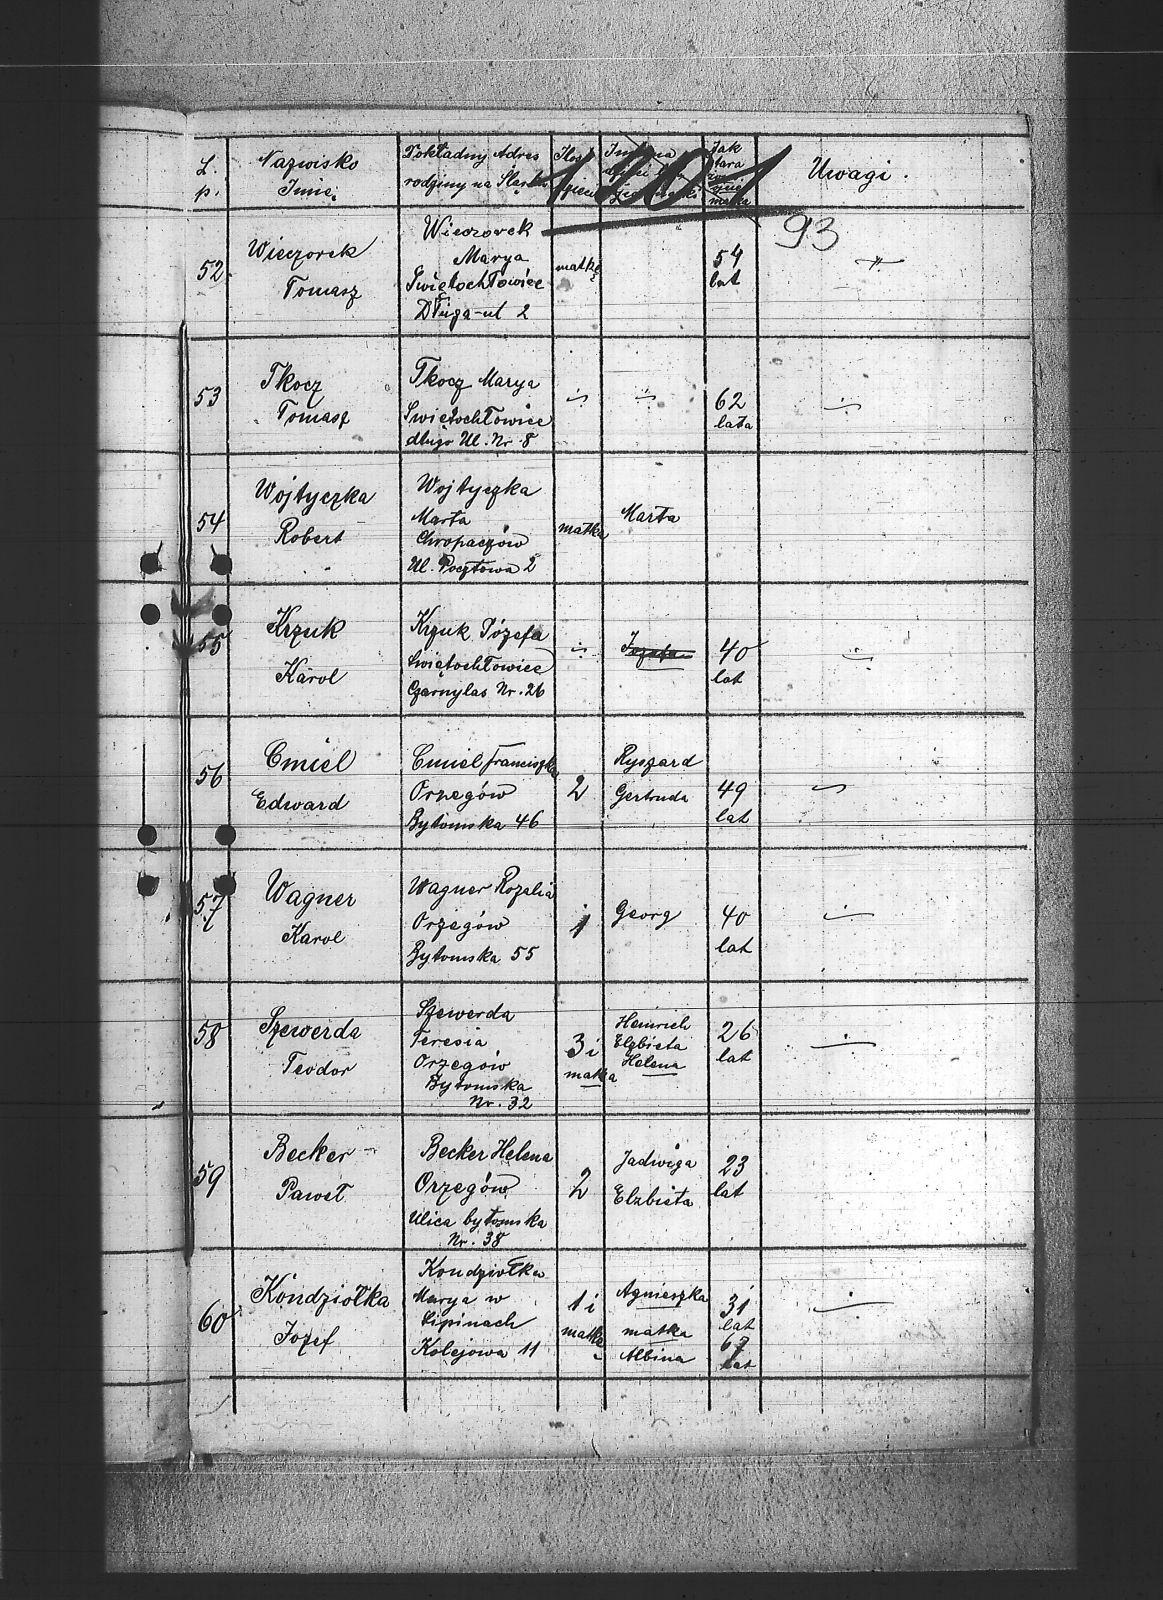 L. p.
Nazwisko
Imię.
Dokładny Adres
rodziny na Śląsku
Jak
stara
matka
Uwagi.
1201
93
52
Wieczorek
Tomasz
Wieczorek
Marya
Świętochłowice
Długa-ul 2
matkę
54
lat
53
Tkocz
Tomasz
Tkocz Marya
Świętochłowice
długo Ul. Nr. 8
62
lata
54
Wojtyczka
Robert
Wojtyczka
Marta
Chropaczów
Ul. Pocztowa 2
matka
Marta
55
Krzuk
Karol
Krzuk Józefa
Świętochłowice
Czarnylas Nr. 26
40
lat
56
Cmiel
Edward
Cmiel Franciszka
Orzegów
Bytomska 46
2
Ryszard
Gertruda
49
lat
57
Wagner
Karol
Wagner Rozalia
Orzegów
Bytomska 55
1
Georg
40
lat
58
Szewerda
Teodor
Szewerda
Teresia
Orzegów
Bytomska
Nr. 32
3 i
matka
Heinrich
Elzbieta
Helena
26
lat
59
Becker
Paweł
Becker Helena
Orzegów
Ulica bytomska
Nr. 38
2
Jadwiga
Elzbieta
23
lat
60
Kondziołka
Jozef
Kondziołka
Marya w
Lipinach
Kolejowa 11
1 i
matkę
Agnieszka
matka
Albina
31
lat
67
lat